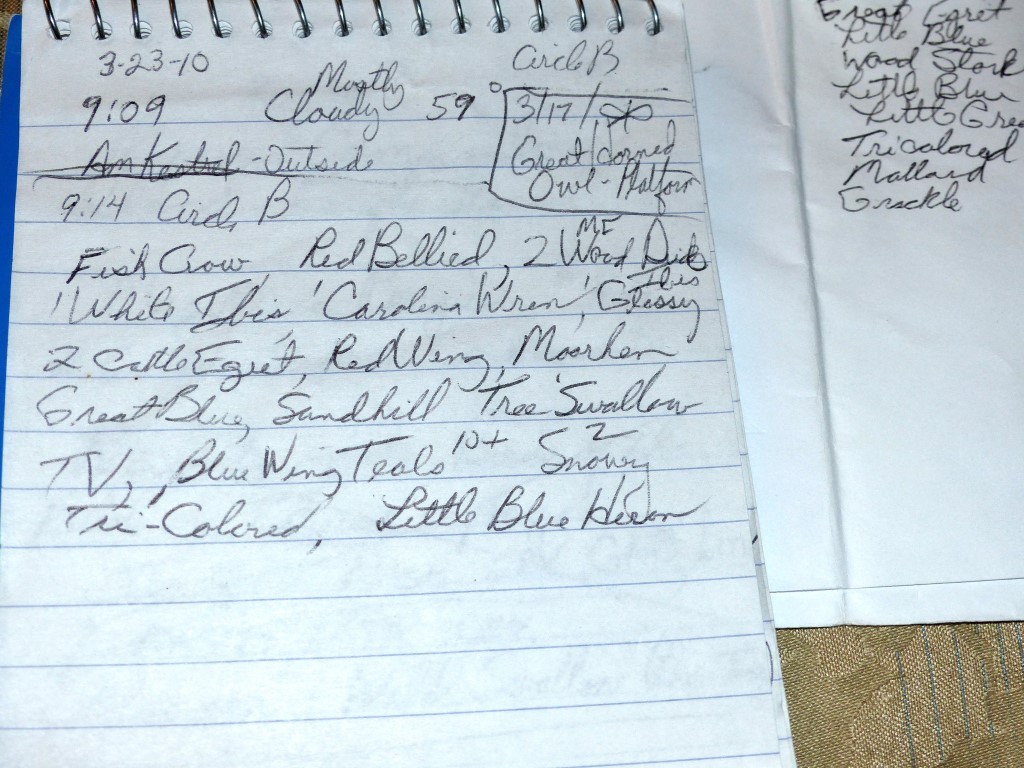 3-23-10 Circle B
Mostly
9:09 Cloudy 59°
3/17/
Great Horned
Owl - Platform
Am Kestrel - Outside
9:14 Circl B
Fish Crow, Red Bellied, 2 Wood Ducks M F
1 White Ibis, 1 Carolina Wren, Glossy Ibis
2 Cattle Egret, Red Wing, Moorhen
Great Blue, Sandhill Tree Swallow
TV, Blue Wing Teals 10+ Snowy 2
Tri-Colored, Little Blue Heron
Great Egret
Little Blue
Wood Stork
Little Blue
Little Gre
Tricolored
Mallard
Grackle